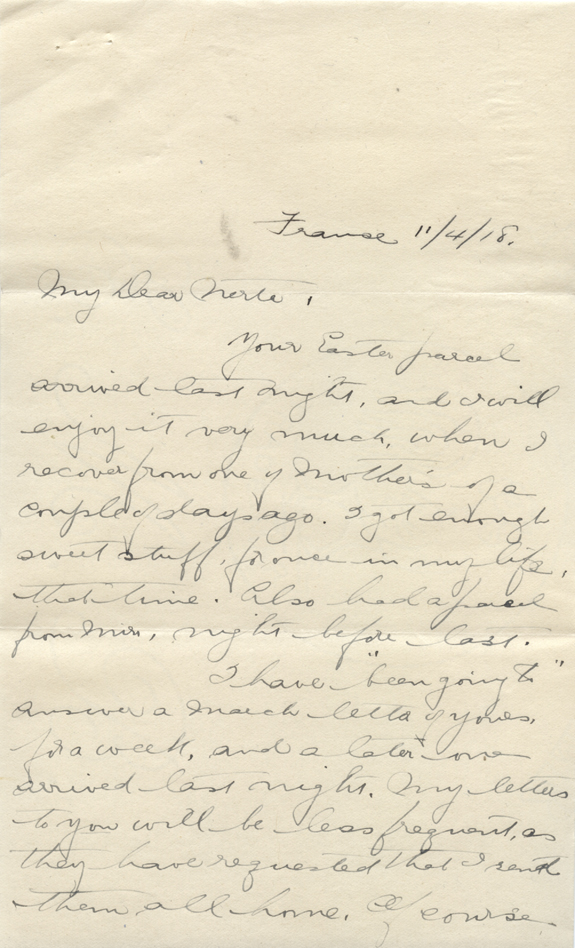 France 11/4/18.
My Dear Norte,
Your Easter parcel
arrived last night, and I will
enjoy it very much, when I
recover from one of Mother's of a
couple of days ago. I got enough
sweet stuff, for once in my life,
that time. Also had a parcel
from Min, night before last.
I have "been going to"
answer a March letter of yours,
for a week, and a later one
arrived last night. My letters
to you will be less frequent, as
they have requested that I send
them all home. Of course